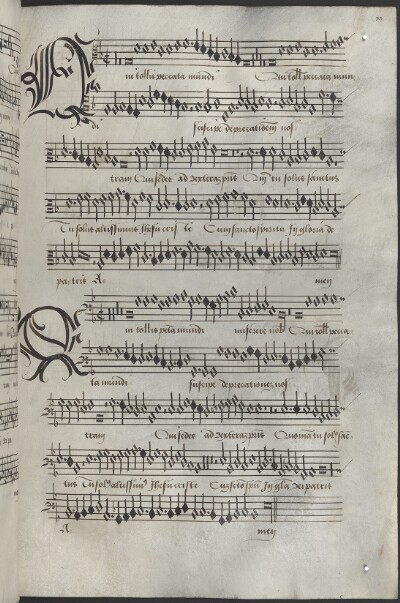 Qui tollis peccata mundi Qui toll peccata mun
di suscipe deprecationem nos
tram Qui sedes ad dexteram pris Qm tu solus sanctus
Tu solus altissimus Jhesu cris te Cum sancto spiritu in gloria de
patris A men
Qui tollis pcta mundi miserere nob Qui toll pecca
ta mundi suscipe deprecationes nos
tram Qui sedes ad dexteram pris Quoniam tu sol sac
tus Tu sol altissim Jhesu criste Cu scto spu in gla dei patris
A men